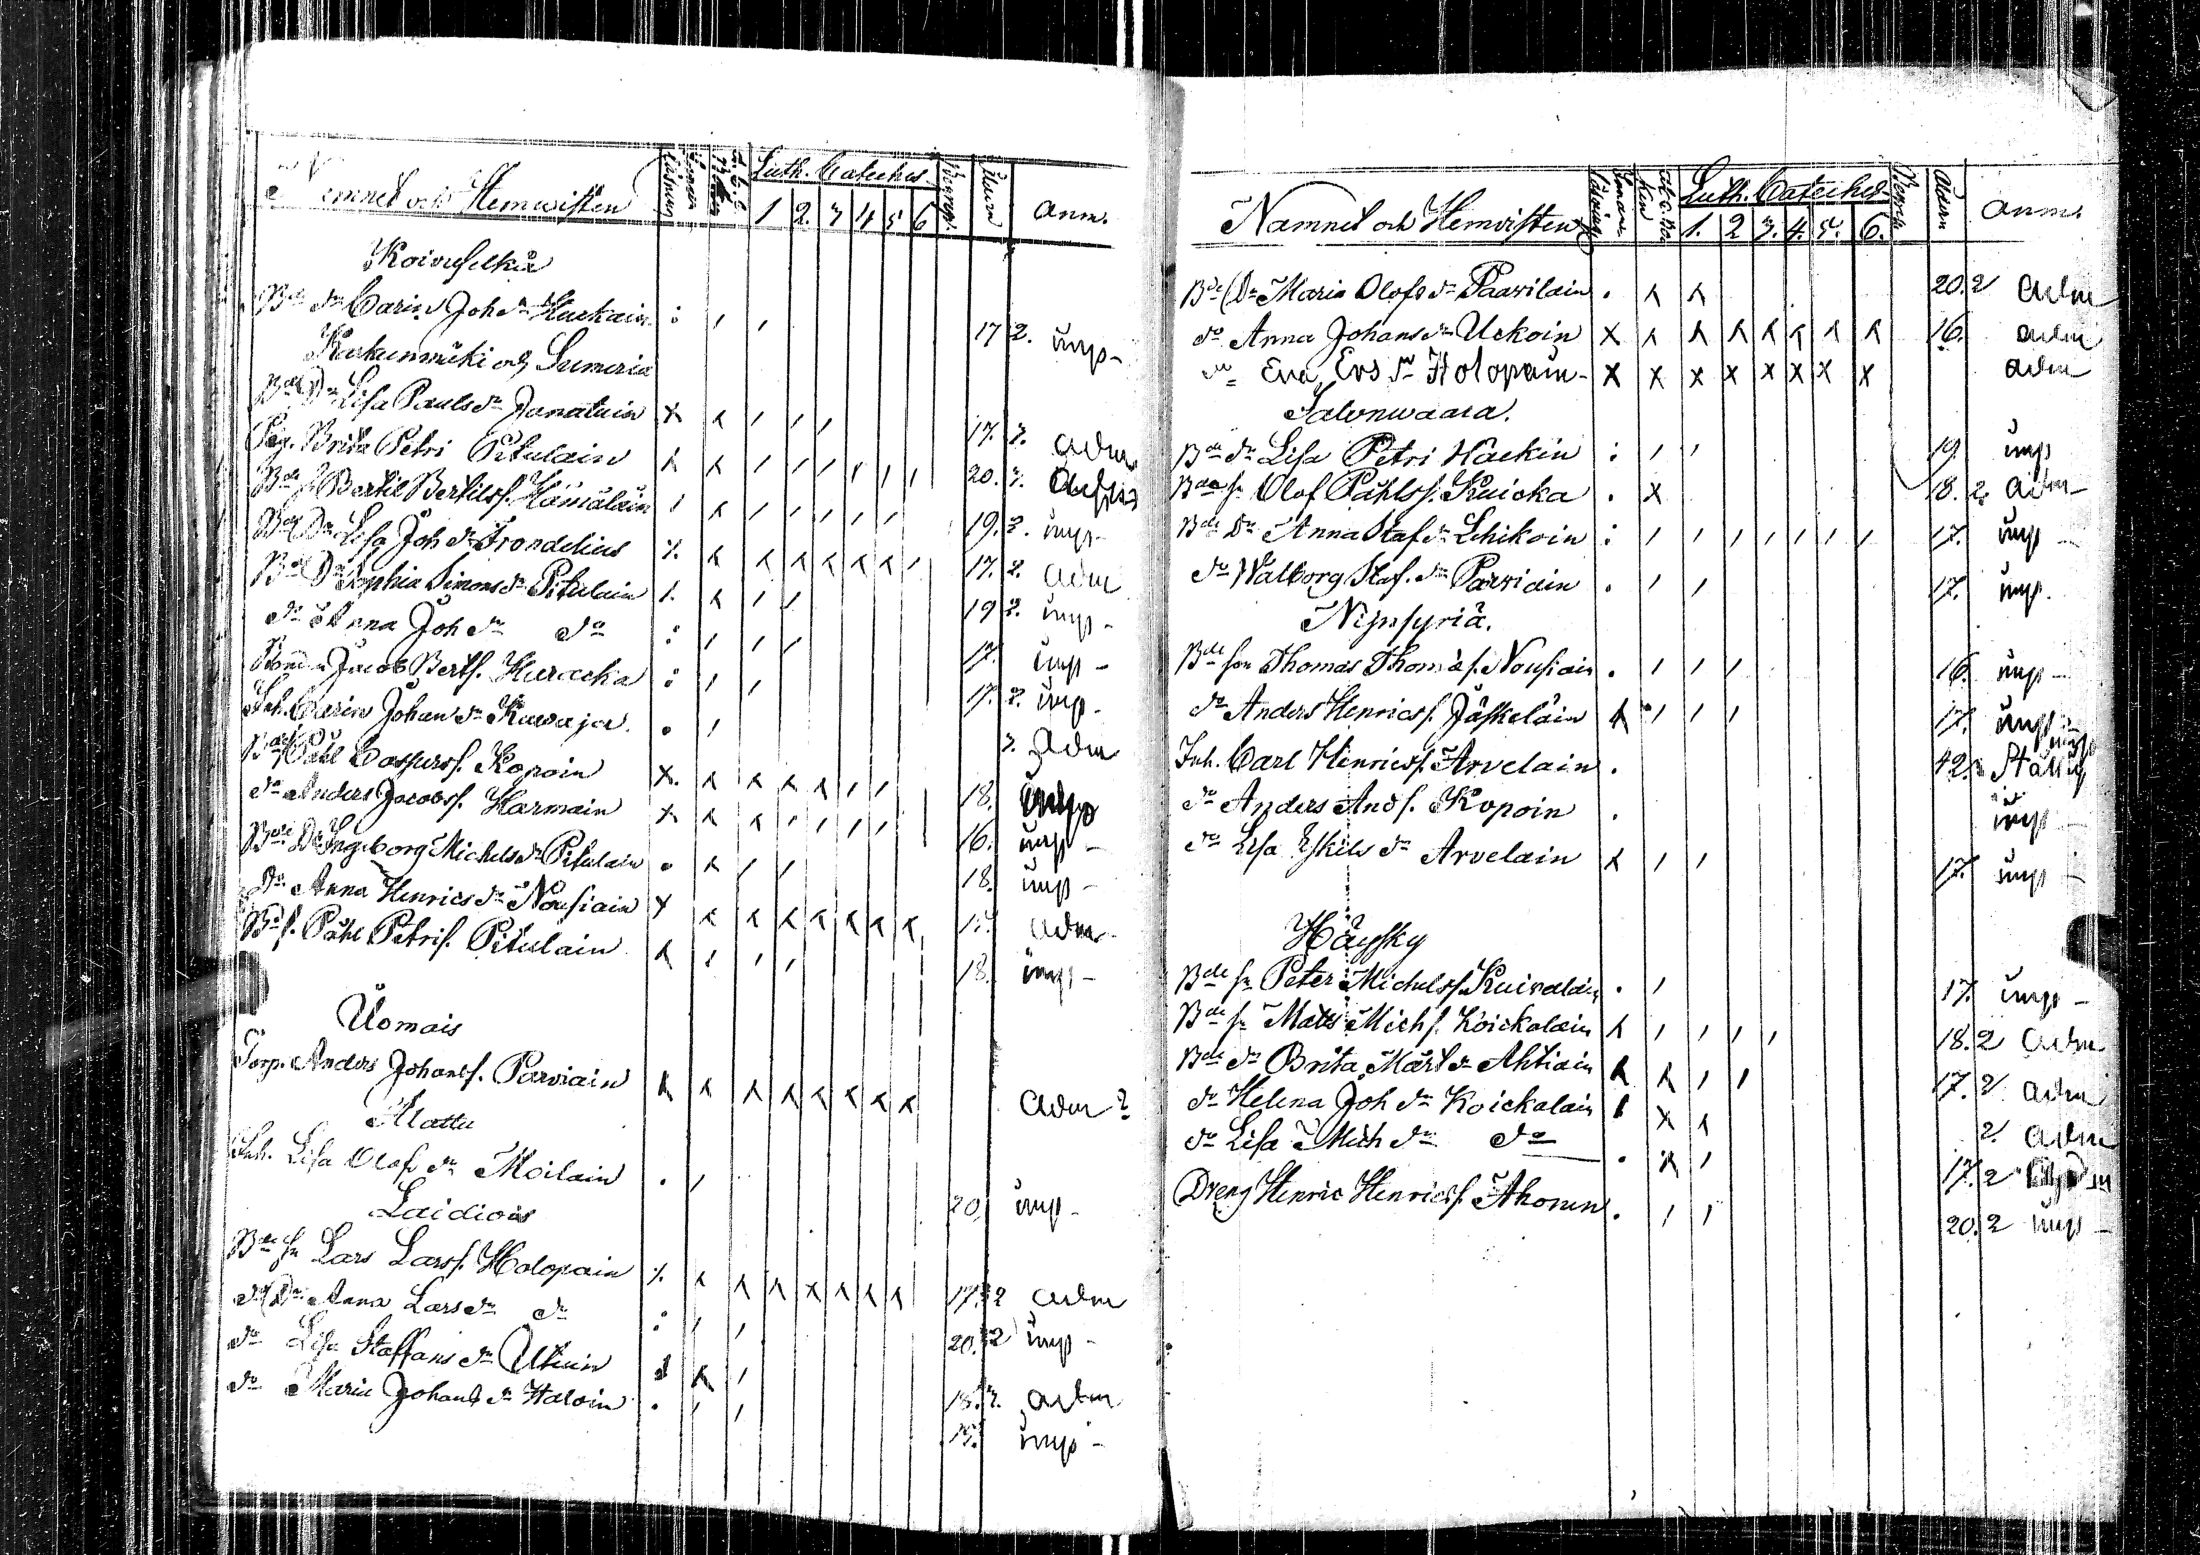 Namnet och Hemwisten Läsning Luth. Cateches. Begrep. Åldern Anm.
1 2. 3 4 5 6
Koivuselkä
Bde dr Carin Joh dr Huckain : / / 17 2. imp-
Kerkunmäki och Sumeria
Bde Dr Lisa Pauls dr Jonatain X ʎ / / / 17. 3. adm
Pig. Brita Petri Pitulain ʎ ʎ / / / / / / 20. 3.
Bde f. Bertil Bertilsf. Hämäläin / ʎ / / / / / 19. 2. imp-
Bde Dr Lisa Joh dr Frondelius ⁒ ʎ ʎ ʎ ʎ ʎ ʎ / 17. 2. adm
Bde Dr Sophia Simons dr Pitulain /. ʎ / / 19 2. imp-
do Anna Joh dr do : / / / 17. imp-
Jacob Bertf. Huracka : / / 17. 2. imp-
Inh. Carin Johan dr Kuvaja . / 3. Adm
Bde Påhl Caspersf. Kopoin X. ʎ ʎ ʎ ʎ / / 18. imp
do Anders Jacobsf. Harmain X ʎ ʎ / / / / 16. imp-
Bde Dr Ingeborg Michels dr Pitulain . ʎ / / 18. imp-
Dr Anna Henrics dr Nousiain X ʎ ʎ ʎ ʎ ʎ ʎ ʎ adm
Bde f. Påhl Petrif. Pitulain ʎ / / / 18. imp-
Uomais
Torp. Anders Johansf. Parviain ʎ ʎ ʎ ʎ ʎ ʎ ʎ ʎ adm 2
Mattu
Inh. Lisa Olofs dr Moilain . / 20. imp-
Laidiois
Bde fn Lars Larsf. Holopain ⁒ ʎ ʎ ʎ X ʎ ʎ ʎ 17. 2 adm
do Dr Anna Lars dr do : / / 20. 2 imp-
do Lisa Staffans dr Utiain ʎ / 18. 3. adm
do Maria Johans dr Haloin . / / 15. imp-
Namnet och Hemwisten Luth. Cateches Begrep Åldern Anm.
1. 2 3. 4. 5. 6.
Bde Dr Maria Olofs dr Paavilain . ʎ ʎ 20. 2 adm
do Anna Johans dr Uckoin X ʎ ʎ ʎ ʎ ʎ ʎ ʎ 16. adm
do Eva, Ers dr Holopain- X X X X X X X X adm
Salonwaara.
Bde dr Lisa Petri Hackin : / / 19. imp
Bde fn Olof Påhlsf. Kuicka . X 18. 2. adm-
Bde Dr Anna Staf dr Lehikoin : / / / / / / / 17. imp-
do Walborg Staf. dr Parviain . / / 17. imp.
Nipsyriä.
Bde son Thomas Thomasf. Nousiain . / / / 16. imp-
do Anders Henricsf. Jäskeläin ʎ / / / 17. imp
Inh. Carl Henricsf. Arvelain . 42.
do Anders Andf. Kopoin . imp-
do Lisa Eskils dr Arvelain ʎ / / 17. imp-
Häysky
Bde fn Peter Michelsf. Kuivalain . / 17. imp-
Bde fn Matts Michf. Koickalain ʎ / / / / 18. 2 adm
Bde dr Brita Mårt dr Ahtiain ʎ ʎ / / 17. 2 adm
do Helena Joh dr Koickalain / X ʎ 2. adm
do Lisa Mich dr do . X / 17. 2
Dreng Henric Henricsf. Ahonen . / / 20. 2 imp-